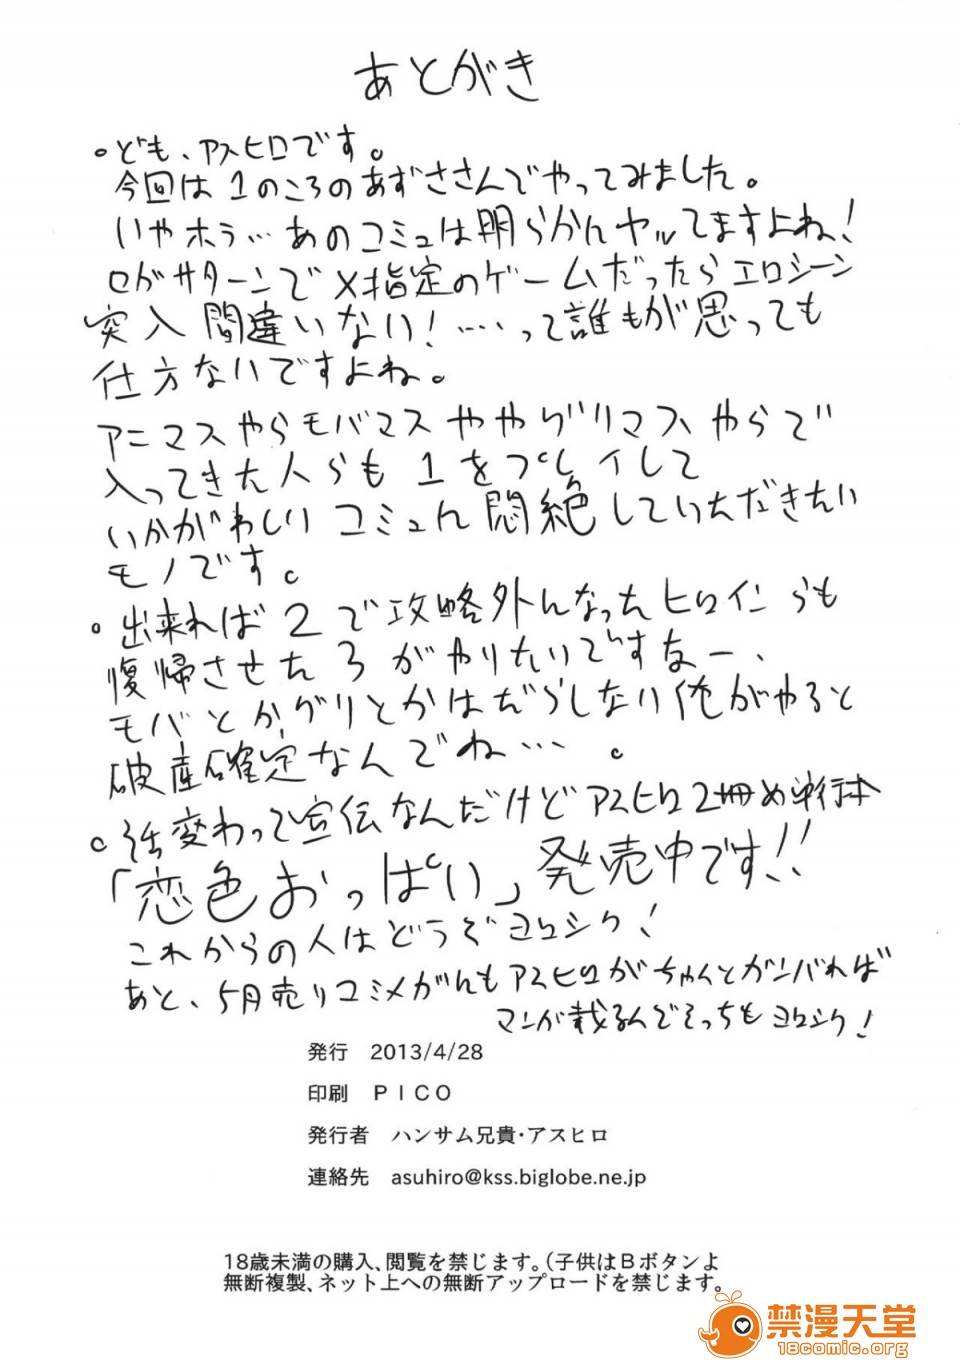 あとがき
・ども、アスヒロです。
今回は1のころのあずささんでやってみました。
いやホラ…あのコミュは明らかんヤルてますよね!
セガサターンでX指定のゲームだったらエロシーン
突入間違いない!……って誰もが思っても
仕方ないですよね。
アニマスやらモバマスややグリマスやらで
入ってきた人らも1をプレイして
いかがわしいコミュに悶絶していただきたい
モノです。
・出来れば2で攻略外になったヒロインらも
復帰させた3がやりたいですなー、
モバとかグリとかはだらしない俺がやると
破産確定なんでね…。
・任変わって宣伝なんだけどアスヒロ2冊め単行本
「恋色おっぱい」発売中です!!
これからの人はどうぞヨロシク!
あと、5月売りコミメガにもアスヒロがちゃんとガンバれば
マンが載るんでそっちもヨロシク!
発行 2013/4/28
印刷 PICO
発行者 ハンサム兄貴・アスヒロ
連絡先 asuhiro@kss.biglobe.ne.jp
18歳未満の購入、閲覧を禁じます。(子供はBボタンよ
無断複製、ネット上への無断アップロードを禁じます。
禁漫天堂
18comic.org